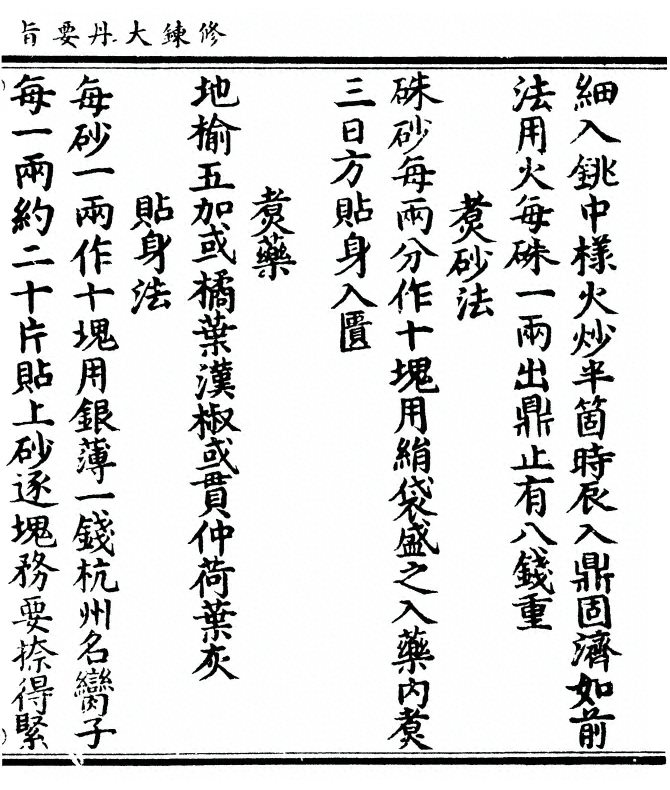 修鍊大丹要旨
細入銚中樣火炒半箇時辰入鼎固濟如前
法用火每硃一兩出鼎止有八錢重
煑砂法
硃砂每兩分作十塊用絹袋盛之入藥內煑
三日方貼身入匱
煑藥
地榆五加或橘葉漢椒或貫仲荷葉灰
貼身法
每砂一兩作十塊用銀薄一錢杭州名臠子
每一兩約二十片貼上砂逐塊務要捺得緊